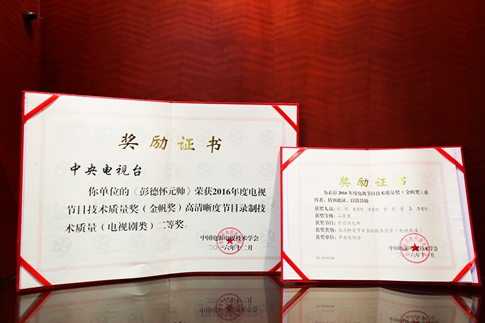 奖励证书
中央电视台
你单位的《彭德怀元帅》荣获2016年度电视
节目技术质量奖（金帆奖）高清晰度节目录制技
术质量（电视剧类）二等奖。
中国电影电视技术学会
二〇一六年十二月
奖励证书
为表彰2016年度电视节目技术质量奖（金帆奖）获
奖者，特颁此证，以资鼓励
获奖人员：
获奖等级：二等奖
获奖节目：彭德怀元帅
获奖类别：高清晰度节目录制技术质量（电视剧类）
获奖单位：中央电视台
中国电影电视技术学会
二〇一六年十二月